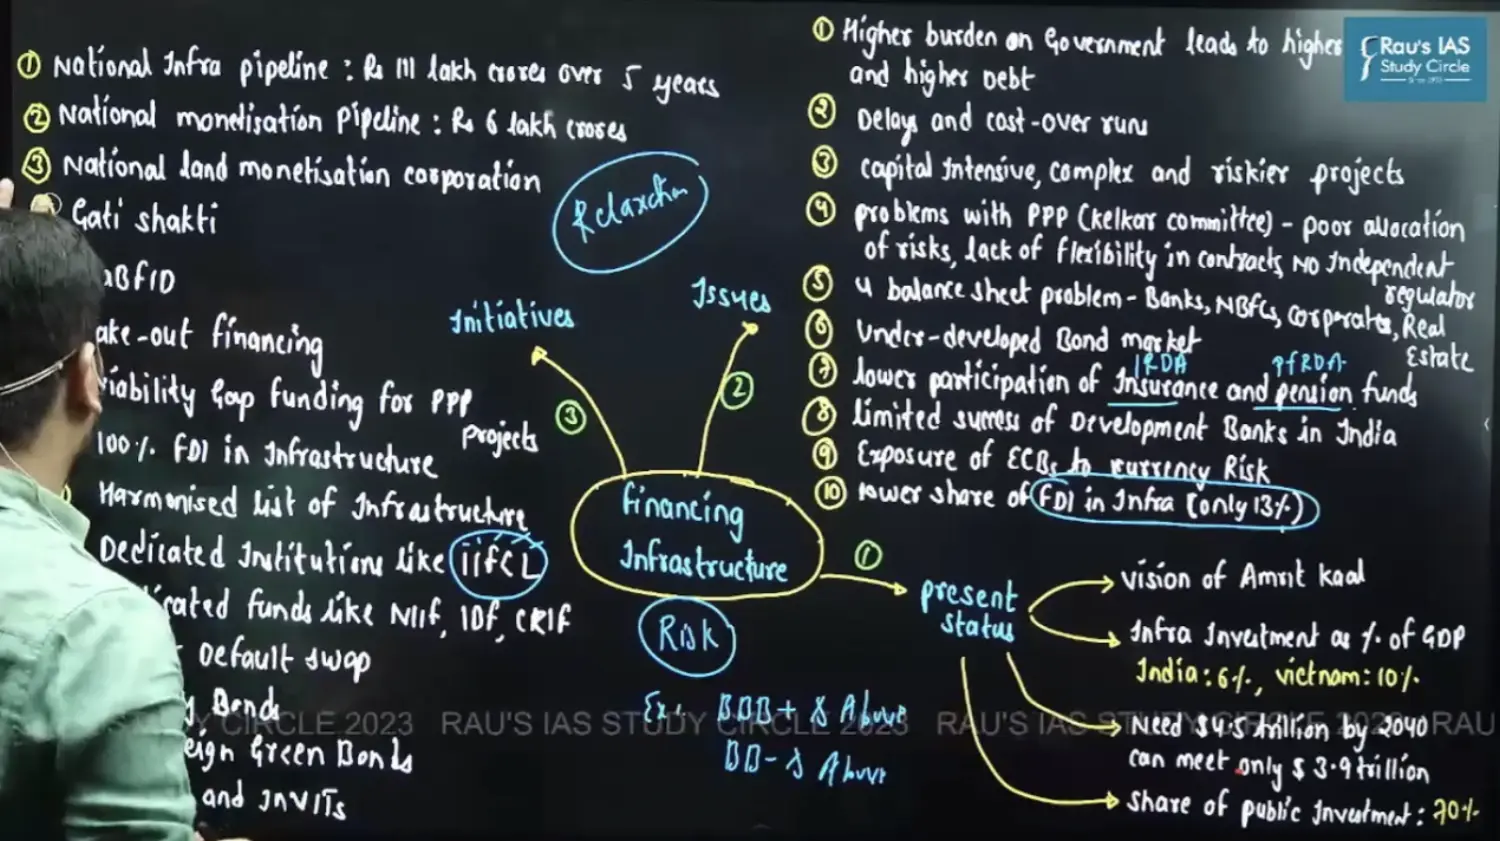 ① National Infra pipeline : Rs 111 lakh crores over 5 years
② National monetisation Pipeline : Rs 6 lakh crores
③ National land monetisation corporation
Gati shakti
aBFID
ake-out financing
iability Gap Funding for PPP
projects
100% FDI in Infrastructure
Harmonised list of Infrastructure
Dedicated Institutions like IIFCL
icated funds like NIIF, IDF, CRIF
Default swap
Bonds
eign Green Bonds
and InVITs
Relaxation
Initiatives
Issues
③
②
Financing
Infrastructure
①
Risk
Ex:
BBB+ & Above
BB- & Above
① Higher burden on Government leads to higher
and higher Debt
② Delays and cost-over runs
③ capital Intensive, complex and riskier projects
④ problems with PPP (Kelkar committee) - poor allocation
of risks, lack of flexibility in contracts, No Independent
regulator
⑤ 4 balance sheet problem - Banks, NBFCs, corporates, Real
Estate
⑥ Under-developed Bond market
IRDA PFRDA
⑦ lower participation of Insurance and pension funds
⑧ limited success of Development Banks in India
⑨ Exposure of ECBs to currency Risk
⑩ lower share of FDI in Infra (only 13%)
present
status
vision of Amrit kaal
Infra Investment as % of GDP
India : 6%, vietnam : 10%
Need $ 4.5 trillion by 2040
can meet only $ 3.9 trillion
share of public Investment : 70%
Rau's IAS
Study Circle
CIRCLE 2023 RAU'S IAS STUDY CIRCLE 2023 RAU'S IAS STUDY CIRCLE 2023 RAU